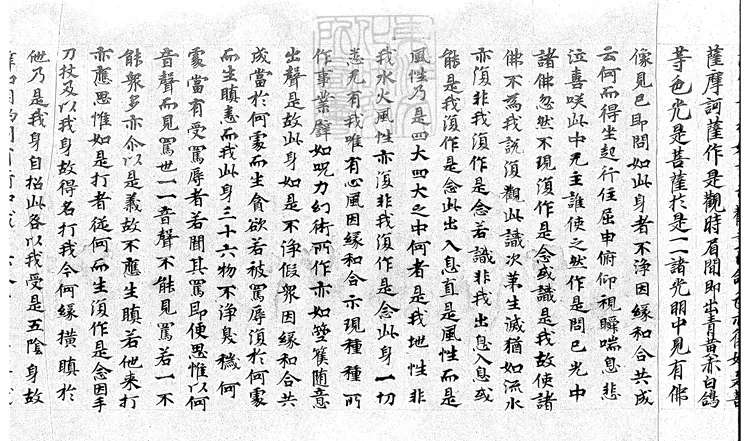 薩摩訶薩作是觀時眉間即出青黃赤白鴿
等色光是菩薩於是一一諸光明中見有佛
像見已即問如此身者不淨因緣和合共成
云何而得坐起行住屈申俯仰視瞬喘息悲
泣喜咲此中无主誰使之然作是問已光中
諸佛忽然不現復作是念或識是我故使諸
佛不為我說復觀此識次第生滅猶如流水
亦復非我復作是念若識非我出息入息或
能是我復作是念此出入息直是風性而是
風性乃是四大四大之中何者是我地性非
我水火風性亦復非我復作是念此身一切
悉无有我唯有心風因緣和合示現種種所
作事業譬如呪力幻術所作亦如箜篌隨意
出聲是故此身如是不淨假眾因緣和合共
成當於何處而生貪欲若被罵辱復於何處
而生瞋恚而我此身三十六物不淨臭穢何
處當有受罵辱者若聞其罵即便思惟以何
音聲而見罵也一一音聲不能見罵若一不
能眾多亦尒以是義故不應生瞋若他來打
亦應思惟如是打者從何而生復作是念因手
刀杖及以我身故得名打我今何緣橫瞋於
他乃是我身自招此咎以我受是五陰身故